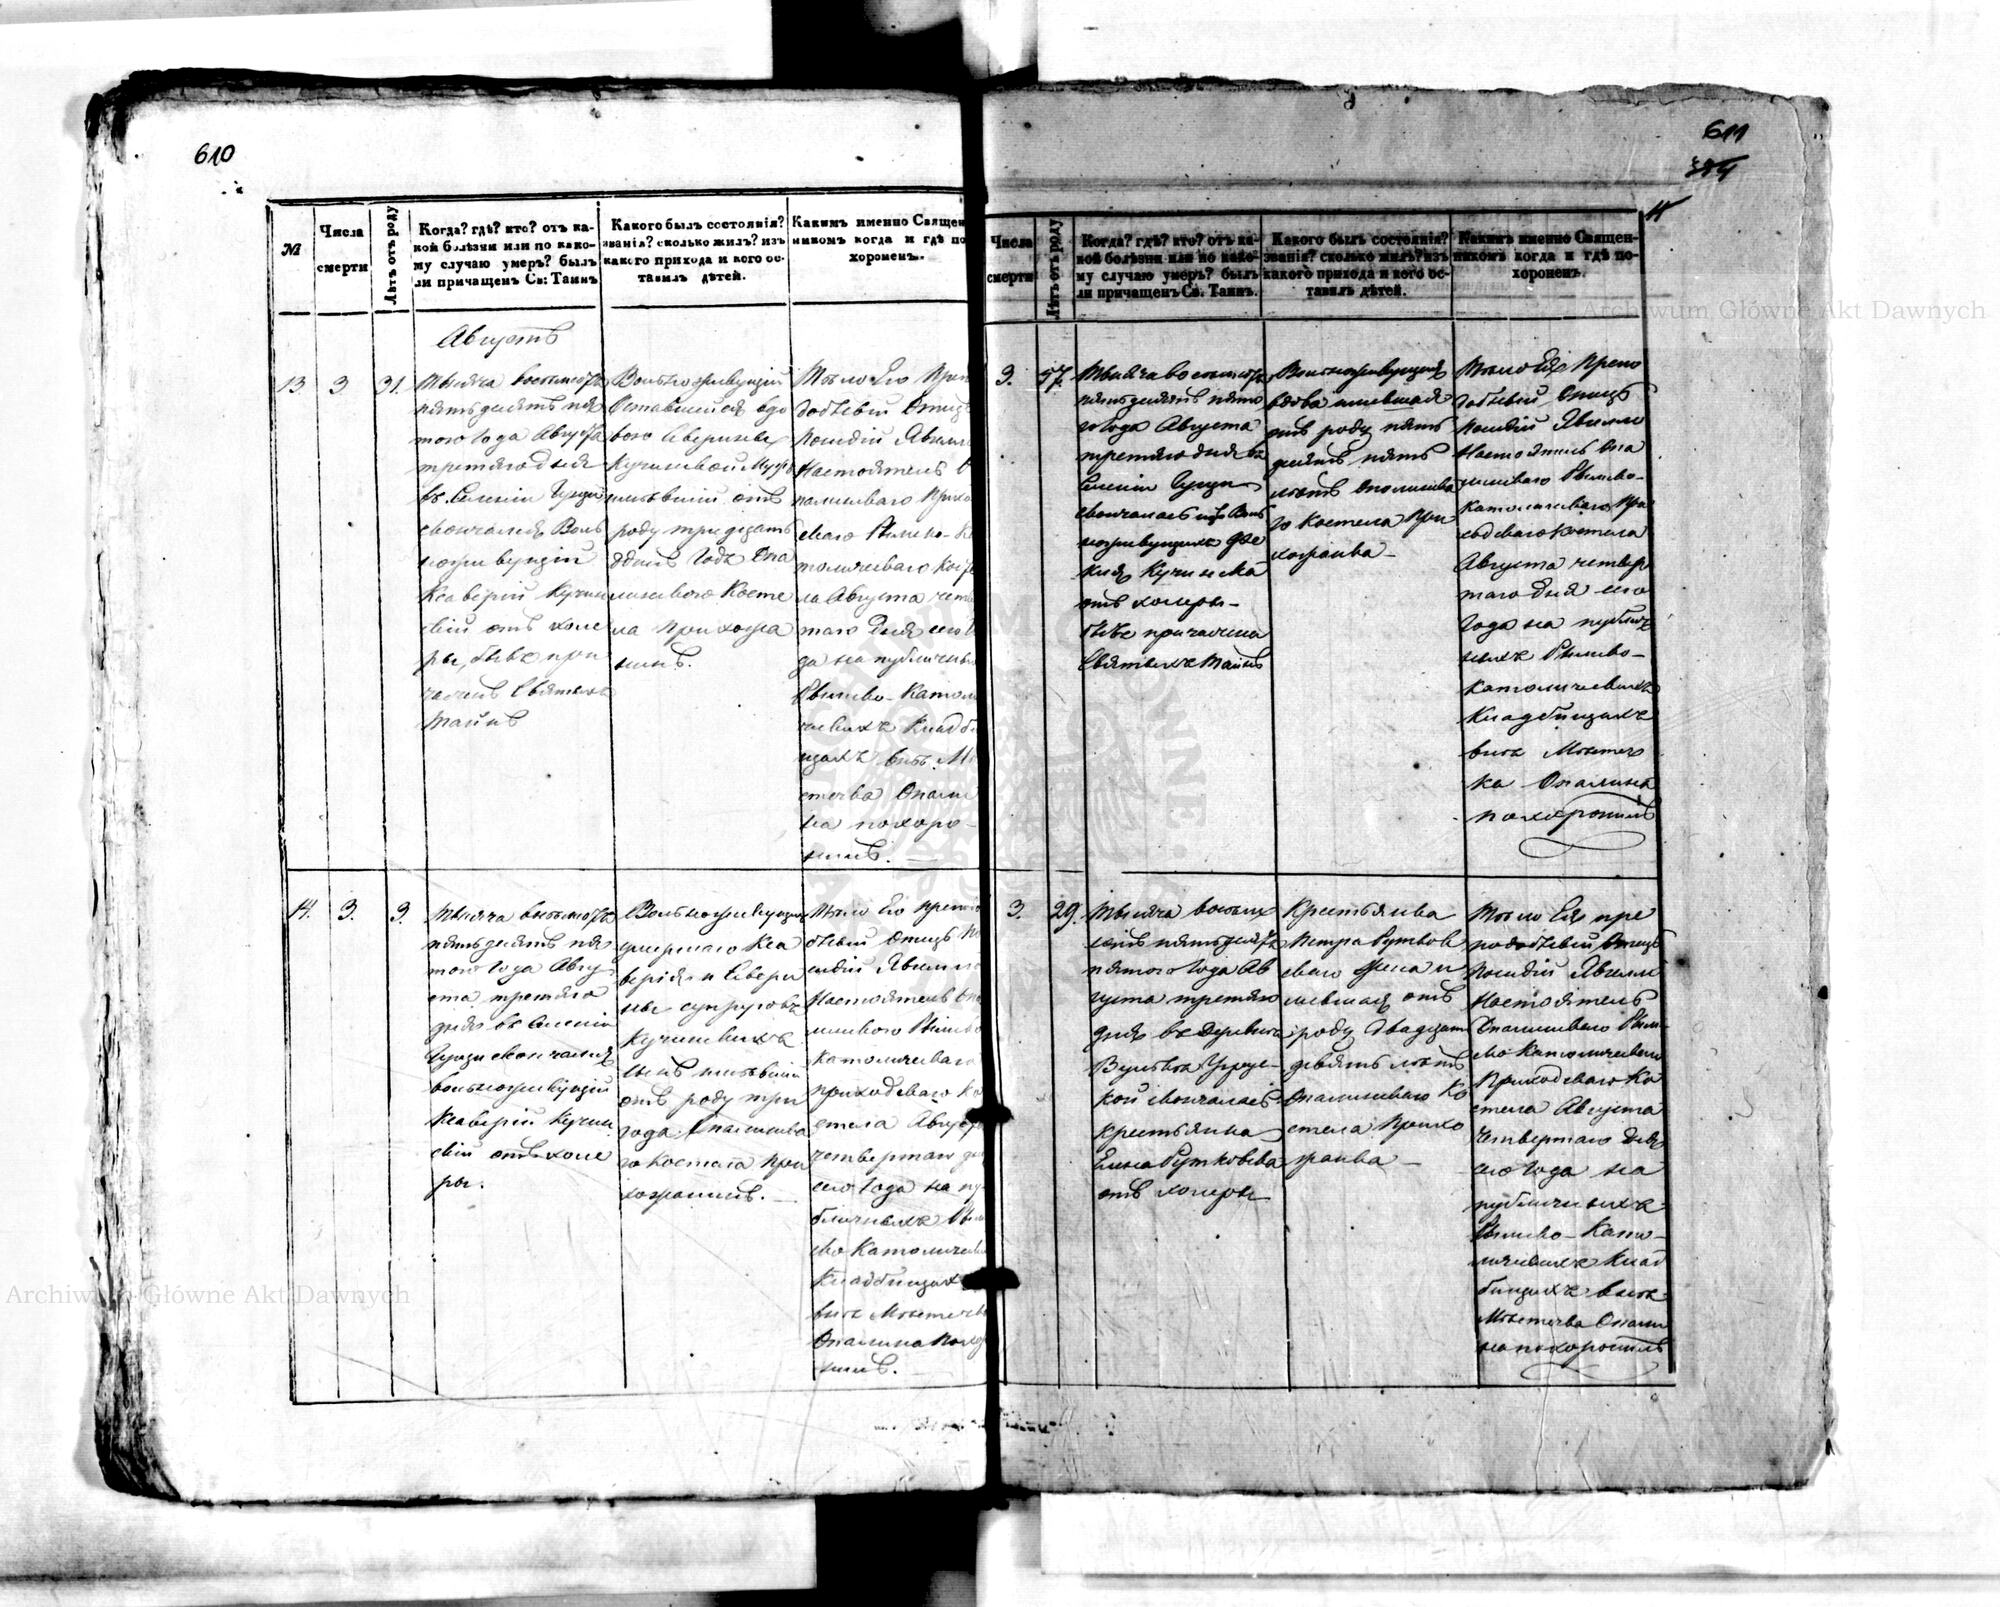 610
№
Числа
смерти
Лѣтъ отъ роду
Когда? гдѣ? кто? отъ ка-
кой болѣзни или по како-
му случаю умеръ? былъ
ли причащенъ Св: Таинъ
Какого былъ состоянія?
званія? сколько жилъ? изъ
какого прихода и кого ос-
тавилъ дѣтей.
Какимъ именно Священ
никомъ когда и гдѣ по
хороненъ.
Августъ
13.
3.
31.
Тысяча восемьсотъ
пятьдесятъ пя
того года Августа
третьяго дня
въ Селеніи
скончался Воль
ноживущій
Ксаверій Кучин
скій отъ холе
ры, бывъ при
чащенъ Святыхъ
Таинъ
Вольноживущій
Оставшейся вдо
вою Северины
Кучинской Мужъ
имѣвшій отъ
роду тридцать
одинъ годъ Опа
линскаго Косте
ла прихожа
нинъ.
Тѣло Его Преп
добный Отецъ
Настоятель О
палинскаго Прихо
дскаго Римско-К
толическаго Косте
ла Августа четв
таго дня сего
да на публичны
Римско-Катол
ческихъ Кладби
щахъ внѣ М
стечка Опали
на похоро-
нилъ.
14.
3.
3.
Тысяча восемьсотъ
пятьдесятъ пя
того года Авгу
ста третьяго
дня въ Селеніи
скончался
вольноживущій
Ксаверій Кучин
скій отъ холе
ры.
Вольноживущихъ
умершаго Кса
верія и Севери
ны супруговъ
Кучинскихъ
сынъ имѣвшій
отъ роду три
года Опалинска
го Костела при
хожанинъ.
Тѣло Его препо
добный Отецъ
Настоятель Опа
линскаго Римско
Католическаго
приходскаго Ко
стела Августа
четвертаго дн
сего года на пу
бличныхъ Рим
ско Католически
Кладбищахъ
внѣ Мѣстечка
Опалина похоро
нилъ.
611
Числа
смерти
Лѣтъ отъ роду
Когда? гдѣ? кто? отъ ка-
кой болѣзни или по како-
му случаю умеръ? былъ
ли причащенъ Св. Таинъ.
Какого былъ состоянія?
званія? сколько жилъ? изъ
какого прихода и кого ос-
тавилъ дѣтей.
Какимъ именно Священ-
никомъ когда и гдѣ по-
хороненъ.
3.
57.
Тысяча восемьсотъ
пятьдесятъ пято
го года Августа
третьяго дня въ
Селеніи
скончалась изъ Воль
ноживущихъ
Кучинска
отъ холеры-
бывъ причащена
Святыхъ Таинъ
Вольноживущая
вдова имевшая
отъ роду пять
десятъ
лѣтъ Опалинска
го Костела При
хожанка-
Тѣло Ея Препо
добный Отецъ
Настоятель Опа
линскаго Римско-
Католическаго При
ходскаго Костела
Августа четвер
таго дня сего
года на публич
ныхъ Римско-
Католическихъ
Кладбищахъ
внѣ Мѣстеч
ка Опалина
похоронилъ
3.
29.
Тысяча восемь
сотъ пятьдесятъ
пятого года Ав
густа третьяго
дня въ деревни
кой скончалась
крестьянка
Елена Рутковска
отъ холеры
Крестьянка
Петра Рутков
скаго жена и
мѣвшая отъ
роду двадцать
девять лѣтъ
Опалинскаго Ко
стела Прихо
жанка-
Тѣло Ея пре
подобный Отецъ
Настоятель
Опалинскаго Рим-
ско Католическаго
Приходскаго Ко
стела Августа
четвертаго дня
сего года на
публичныхъ
Римско-Като-
лическихъ Клад
бищахъ внѣ
Мѣстечка Опали
на похоронилъ
Archiwum Główne Akt Dawnych
Archiwum Główne Akt Dawnych